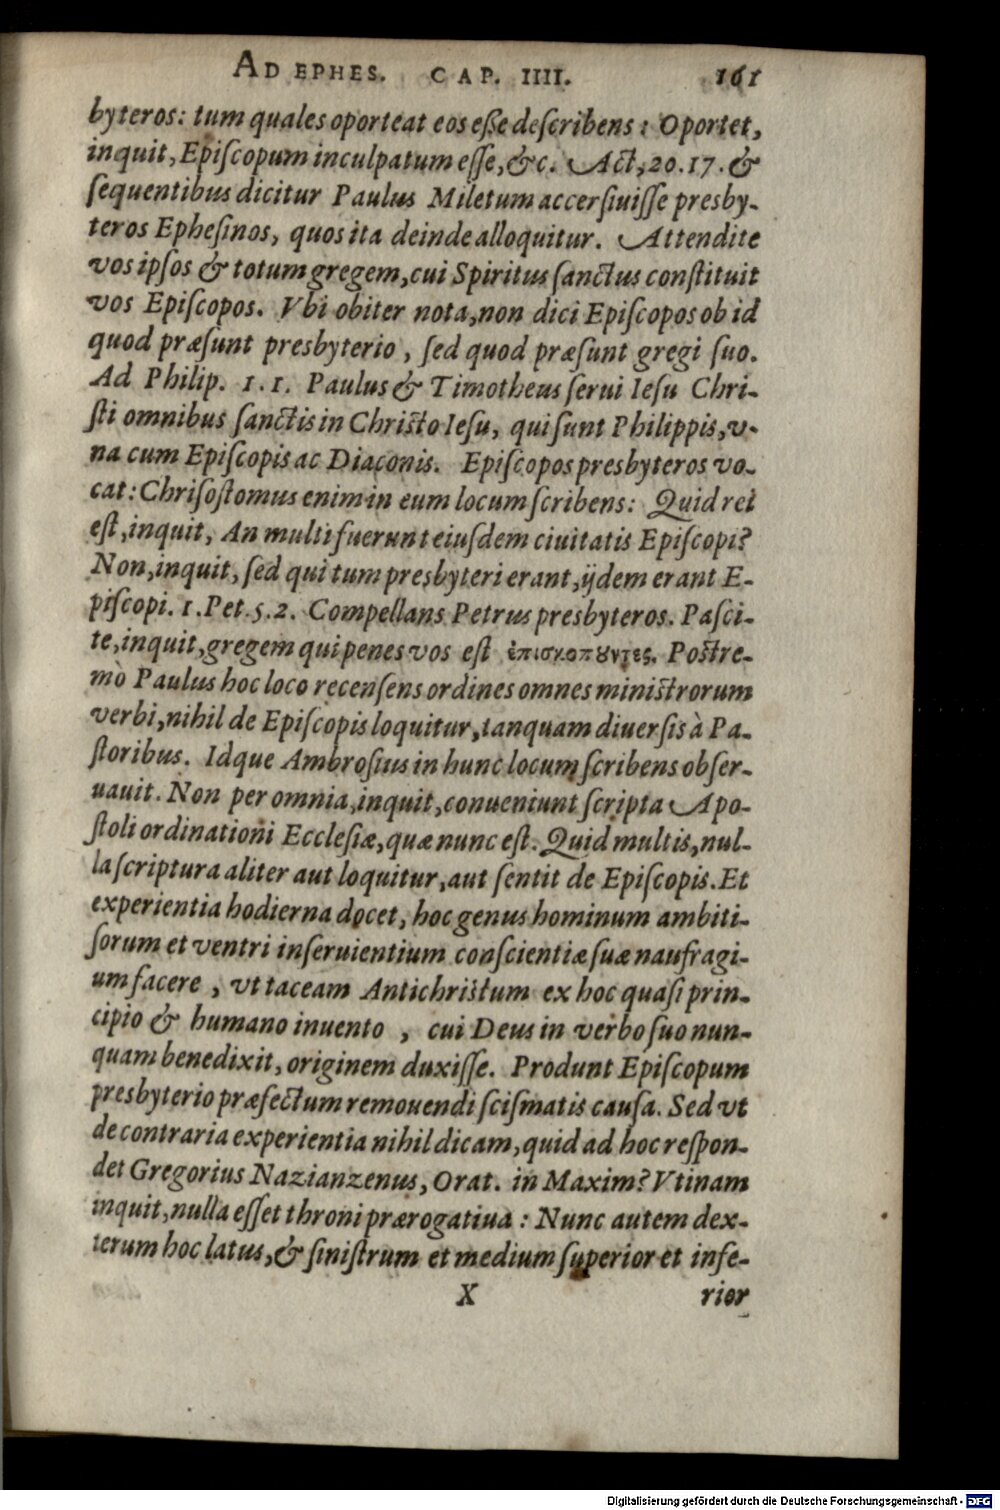 AD EPHES. CAP. IIII. 161
byteros: tum quales oporteat eos eße deſcribens: Oportet,
inquit, Epiſcopum inculpatum eſſe, &c. Act, 20.17. &
ſequentibus dicitur Paulus Miletum accerſiuiſſe presby-
teros Epheſinos, quos ita deinde alloquitur. Attendite
vos ipſos & totum gregem, cui Spiritus ſanctus conſtituit
vos Epiſcopos. Vbi obiter nota, non dici Epiſcopos ob id
quod præſunt presbyterio, ſed quod præſunt gregi ſuo.
Ad Philip. 1.1. Paulus & Timotheus ſerui Ieſu Chri-
ſti omnibus ſanctis in Chriſto Ieſu, qui ſunt Philippis, v-
na cum Epiſcopis ac Diaconis. Epiſcopos presbyteros vo-
cat: Chriſoſtomus enim in eum locum ſcribens: Quid rei
eſt, inquit, An multi fuerunt eiuſdem ciuitatis Epiſcopi?
Non, inquit, ſed qui tum presbyteri erant, ijdem erant E-
piſcopi. 1. Pet. 5.2. Compellans Petrus presbyteros. Paſci-
te, inquit, gregem qui penes vos eſt ἐπισκοπȣντες. Poſtre-
mò Paulus hoc loco recenſens ordines omnes miniſtrorum
verbi, nihil de Epiſcopis loquitur, tanquam diuerſis à Pa-
ſtoribus. Idque Ambroſius in hunc locum ſcribens obſer-
uauit. Non per omnia, inquit, conueniunt ſcripta Apo-
ſtoli ordinationi Eccleſiæ, quæ nunc eſt. Quid multis, nul-
la ſcriptura aliter aut loquitur, aut ſentit de Epiſcopis. Et
experientia hodierna docet, hoc genus hominum ambiti-
ſorum et ventri inſeruientium conſcientiæ ſuæ naufragi-
um facere, vt taceam Antichriſtum ex hoc quaſi prin-
cipio & humano inuento, cui Deus in verbo ſuo nun-
quam benedixit, originem duxiſſe. Produnt Epiſcopum
presbyterio præfectum remouendi ſciſmatis cauſa. Sed vt
de contraria experientia nihil dicam, quid ad hoc reſpon-
det Gregorius Nazianzenus, Orat. in Maxim? Vtinam
inquit, nulla eſſet throni prærogatiua: Nunc autem dex-
terum hoc latus, & ſiniſtrum et medium ſuperior et infe-
X rior
Digitalisierung gefördert durch die Deutsche Forschungsgemeinschaft - DFG